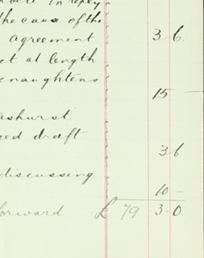 in reply
the case of the
agreement 3 6
at length
enaughtens
15 —
ashurst
draft
3 6
discussing
10 —
forward £ 79 3 0